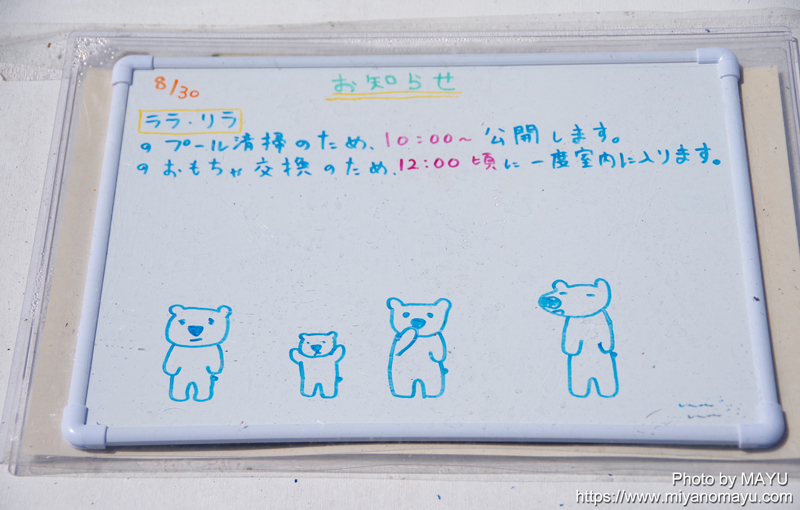 8/30
お知らせ
ララ・リラ
プール清掃のため、10:00〜 公開します。
おもちゃ交換のため、12:00頃に一度室内に入ります。
Photo by MAYU
https://www.miyanomayu.com/